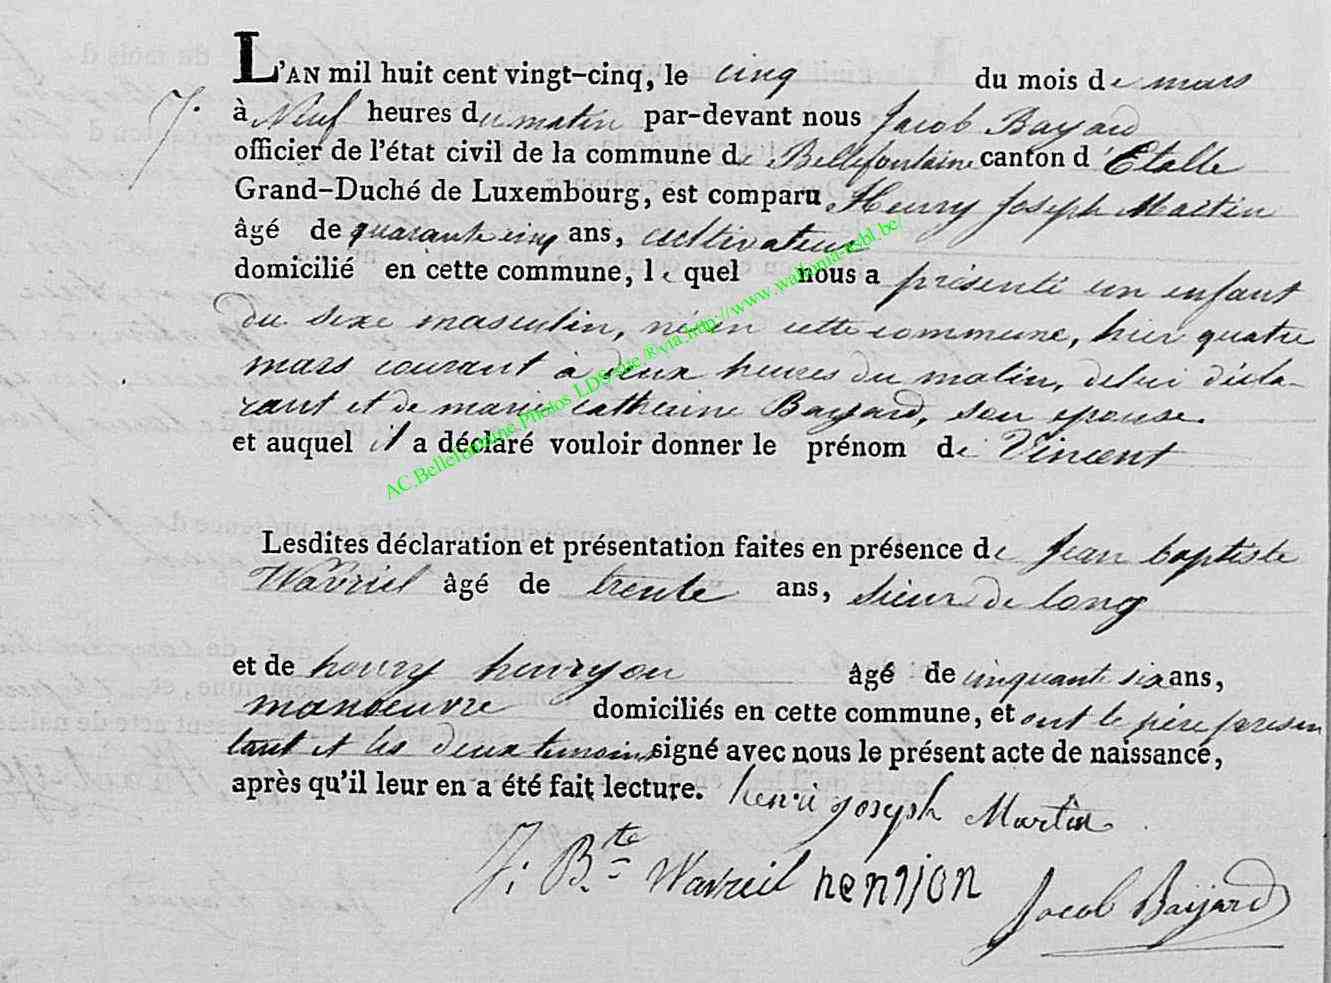 L'AN mil huit cent vingt-cinq, le cinq du mois de mars
7. à Neuf heures du matin par-devant nous Jacob Bayard
officier de l'état civil de la commune de Bellefontaine canton d'Etalle
Grand-Duché de Luxembourg, est comparu Henry Joseph Martin
âgé de quarante cinq ans, cultivateur
domicilié en cette commune, lequel nous a présenté un enfant
du sexe masculin, né en cette commune, hier quatre
mars courant à deux heures du matin, de lui décla-
rant et de marie catherine Bayard, son epouse.
et auquel il a déclaré vouloir donner le prénom de Vincent
AC.Bellefontaine.Photos LDS site/R via http://www.wallonia-asbl.be/
Lesdites déclaration et présentation faites en présence de Jean baptiste
Wavriel âgé de trente ans, sieur de long
et de henry henryon âgé de cinquante six ans,
manoeuvre domiciliés en cette commune, et ont le père presen
tant et les deux temoins signé avec nous le présent acte de naissance,
après qu'il leur en a été fait lecture. henri joseph Martin
J. Bte Wavreil henrjon Jacob Baijard